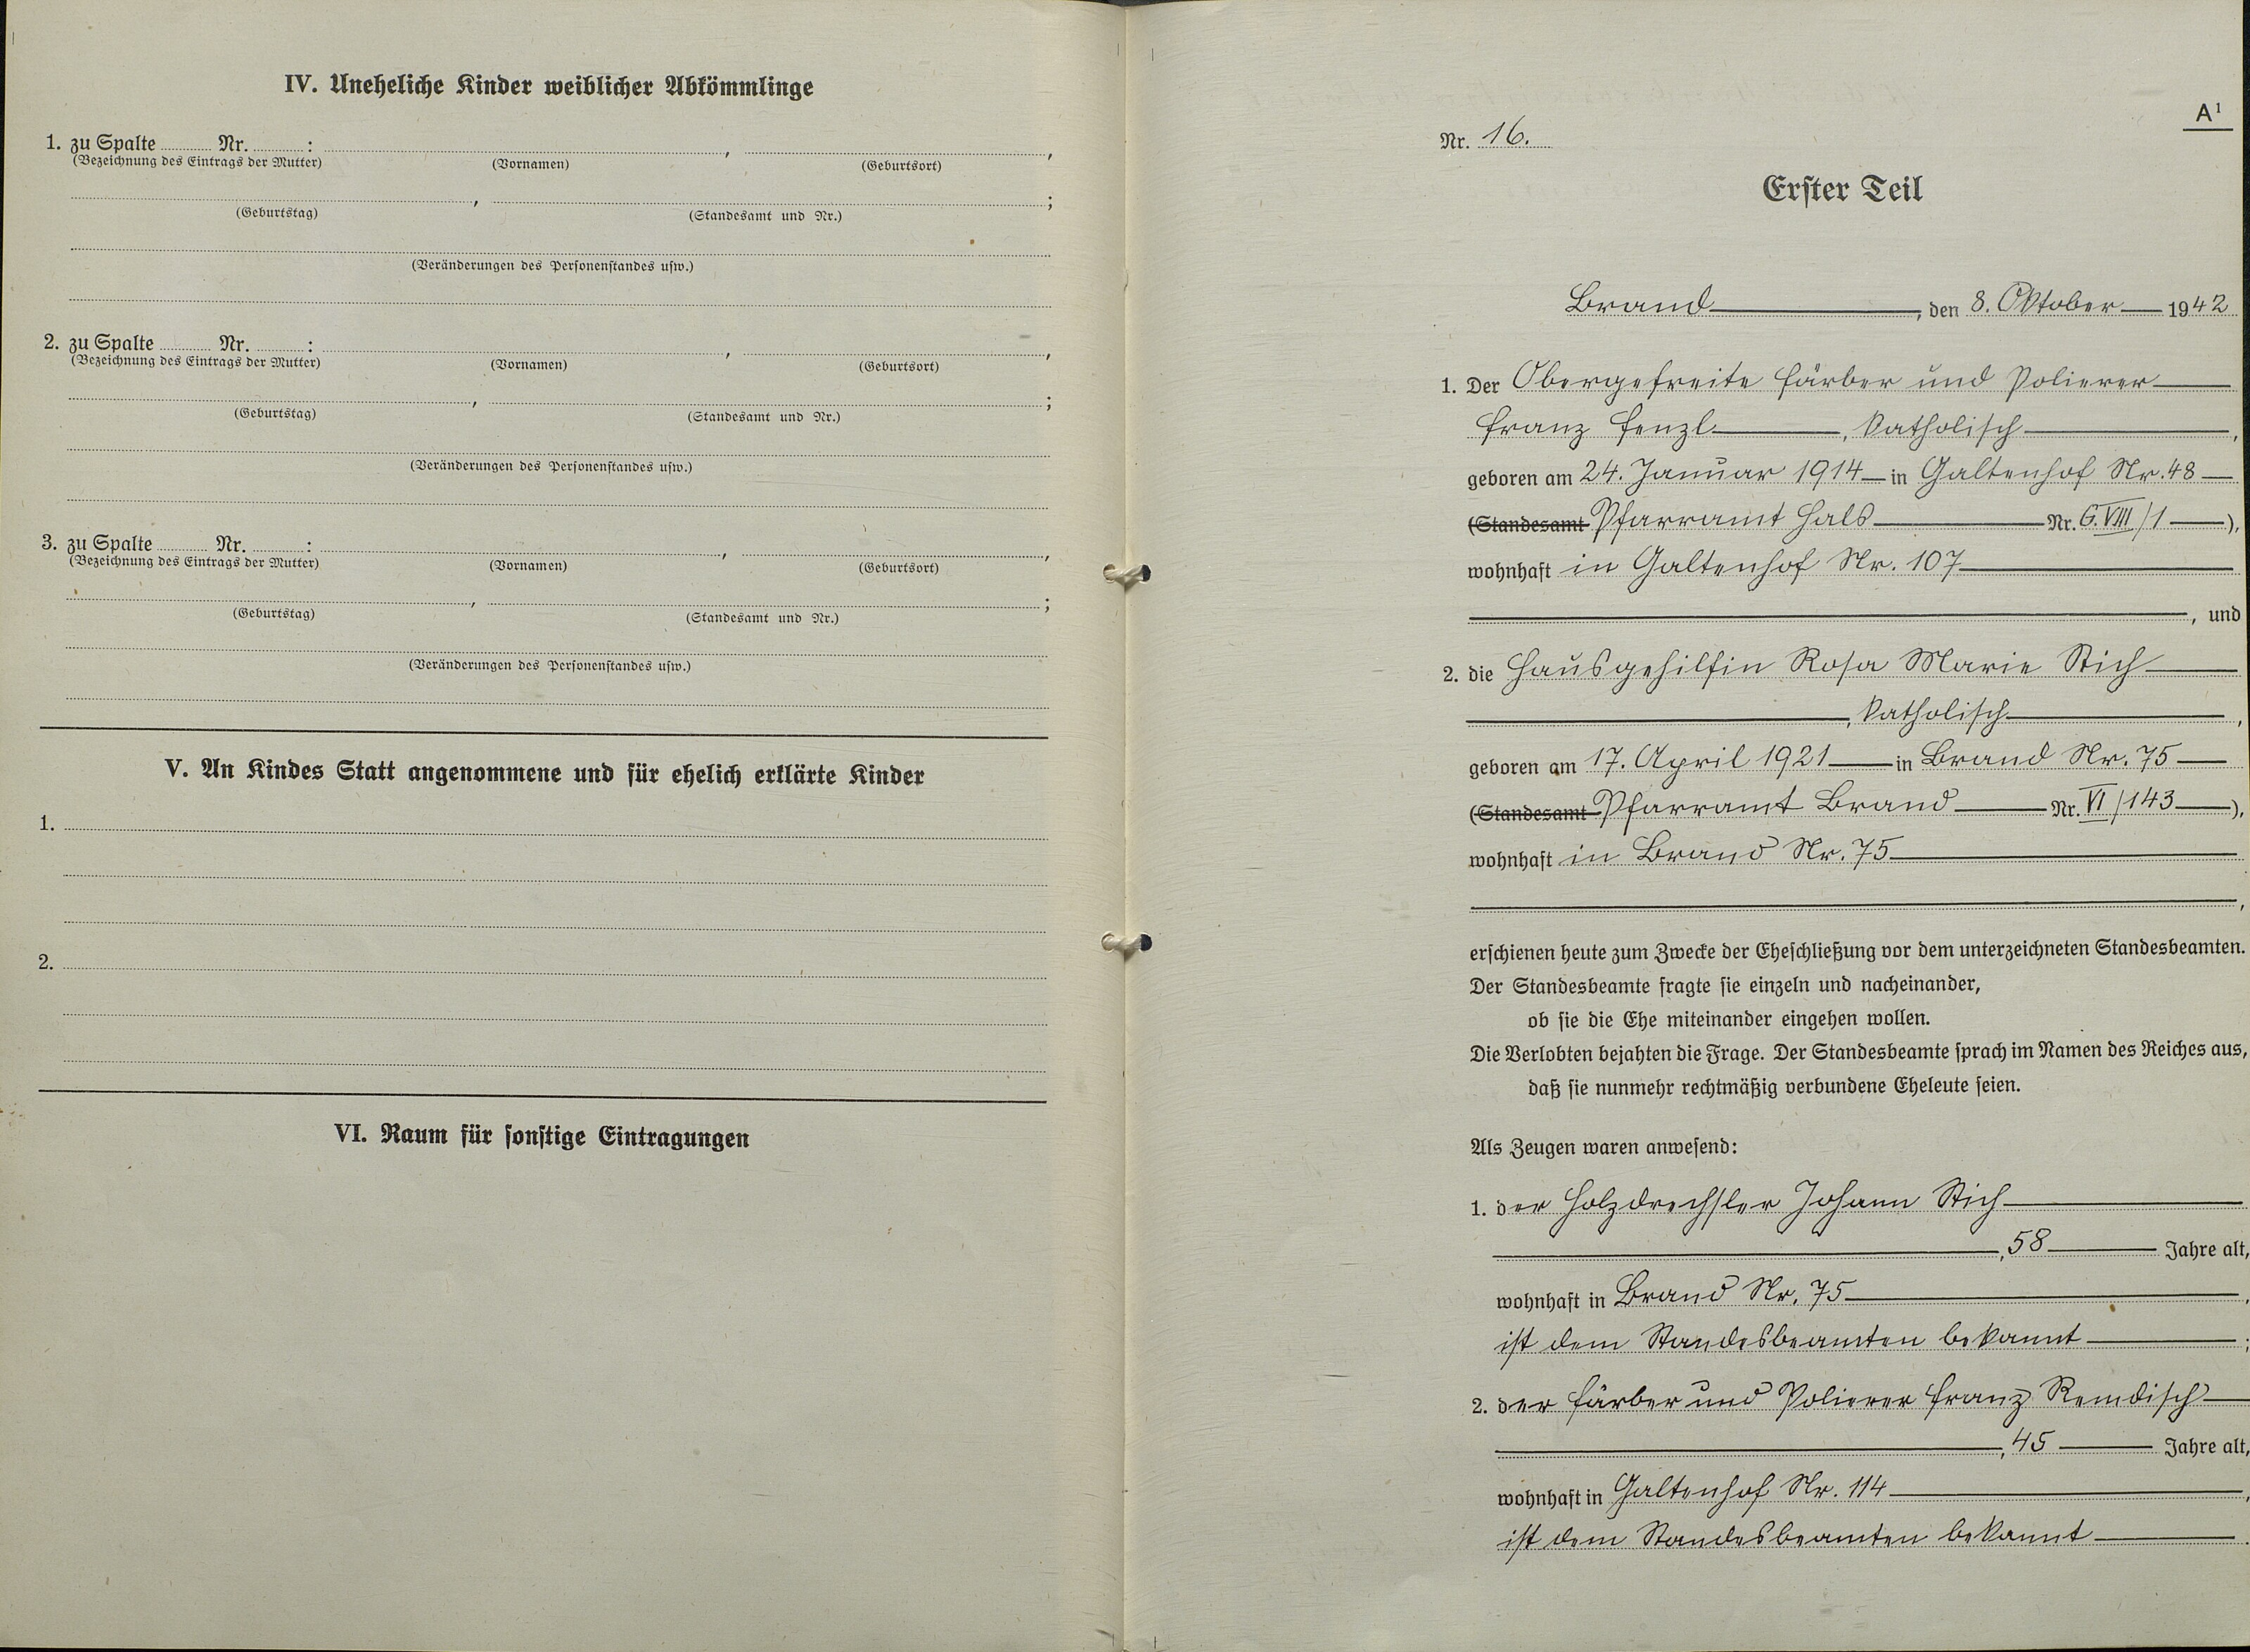 IV. Uneheliche Kinder weiblicher Abkömmlinge
1. zu Spalte ........ Nr. ........ : , ,
(Bezeichnung des Eintrags der Mutter) (Vornamen) (Geburtsort)
, ;
(Geburtstag) (Standesamt und Nr.)
(Veränderungen des Personenstandes usw.)
2. zu Spalte ........ Nr. ........ : , ,
(Bezeichnung des Eintrags der Mutter) (Vornamen) (Geburtsort)
, ;
(Geburtstag) (Standesamt und Nr.)
(Veränderungen des Personenstandes usw.)
3. zu Spalte ........ Nr. ........ : , ,
(Bezeichnung des Eintrags der Mutter) (Vornamen) (Geburtsort)
, ;
(Geburtstag) (Standesamt und Nr.)
(Veränderungen des Personenstandes usw.)
V. An Kindes Statt angenommene und für ehelich erklärte Kinder
1.
2.
VI. Raum für sonstige Eintragungen
A¹
Nr. 16.
Erster Teil
Brand, den 8. Oktober 1942
1. Der Obergefreite Färber und Polierer
Franz Fenzl, katholisch,
geboren am 24. Januar 1914 in Galtenhof Nr. 48
(Standesamt Pfarramt Hals Nr. G. VIII/1),
wohnhaft in Galtenhof Nr. 107
, und
2. die Hausgehilfin Rosa Marie Stich
, katholisch,
geboren am 17. April 1921 in Brand Nr. 75
(Standesamt Pfarramt Brand Nr. VI/143),
wohnhaft in Brand Nr. 75
,
erschienen heute zum Zwecke der Eheschließung vor dem unterzeichneten Standesbeamten.
Der Standesbeamte fragte sie einzeln und nacheinander,
ob sie die Ehe miteinander eingehen wollen.
Die Verlobten bejahten die Frage. Der Standesbeamte sprach im Namen des Reiches aus,
daß sie nunmehr rechtmäßig verbundene Eheleute seien.
Als Zeugen waren anwesend:
1. der Holzdrechsler Johann Stich
, 58 Jahre alt,
wohnhaft in Brand Nr. 75,
ist dem Standesbeamten bekannt;
2. der Färber und Polierer Franz Remdisch
, 45 Jahre alt,
wohnhaft in Galtenhof Nr. 114,
ist dem Standesbeamten bekannt.